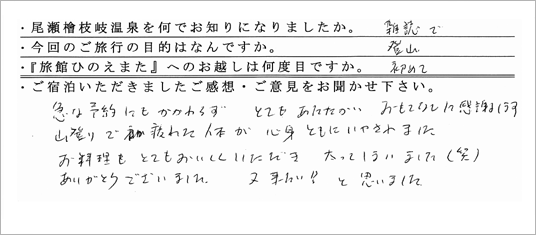 ・尾瀬檜枝岐温泉を何でお知りになりましたか。 雑誌で
・今回のご旅行の目的はなんですか。 登山
・『旅館ひのえまた』へのお越しは何度目ですか。 初めて
・ご宿泊いただきましたご感想・ご意見をお聞かせ下さい。
急な予約にもかかわらず とてもあたたかい おもてなしに感謝します
山登りで疲れた体が 心身ともにいやされました
お料理もとてもおいしくいただき 太ってしまいました(笑)
ありがとうございました 又来たい!! と思いました